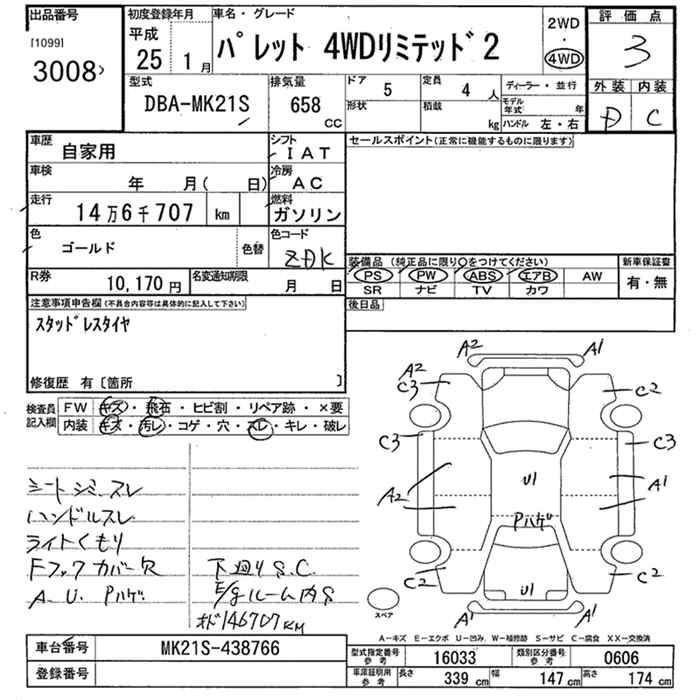 出品番号
[1099]
3008
初度登録年月
平成
25 1月
車名・グレード
パレット 4WDリミテッド2
2WD
・
4WD
評価点
3
外装 内装
D C
型式
DBA-MK21S
排気量
658
CC
ドア 5
形状
定員 4人
積載 kg
ディーラー・並行
モデル年式 年
ハンドル 左・右
車歴
自家用
シフト
IAT
車検
年 月( 日)
冷房
AC
走行
14万6千707 km
燃料
ガソリン
色
ゴールド
色替
色コード
ZDK
R券
10,170円
名変通知期限
月 日
セールスポイント(正常に機能するものに限ります)
装備品(純正品に限り○をつけてください)
新車保証書
PS PW ABS エアB AW
SR ナビ TV カワ
有・無
後日品
注意事項申告欄(不具合内容等は具体的に記入して下さい)
スタッドレスタイヤ
修復歴 有〔箇所 〕
検査員記入欄
FW キズ・飛石・ヒビ割・リペア跡・×要
内装 キズ・汚レ・コゲ・穴・スレ・キレ・破レ
シートシミ、スレ
ハンドルスレ
ライトくもり
Fフックカバー欠
A.U. Pハゲ
下廻りS.C.
E/gルーム内S
オド146707KM
A2 A1
A2
C3 C2
C3 C3
A2 U1 A1
Pハゲ
C2 C2
U1
A1 A1
スペア
A―キズ E―エクボ U―凹み W―補修跡 S―サビ C―腐食 XX―交換済
車台番号
MK21S-438766
登録番号
型式指定番号
参考
16033
類別区分番号
参考
0606
車庫証明用
参考
長さ 339cm
幅 147cm
高さ 174cm